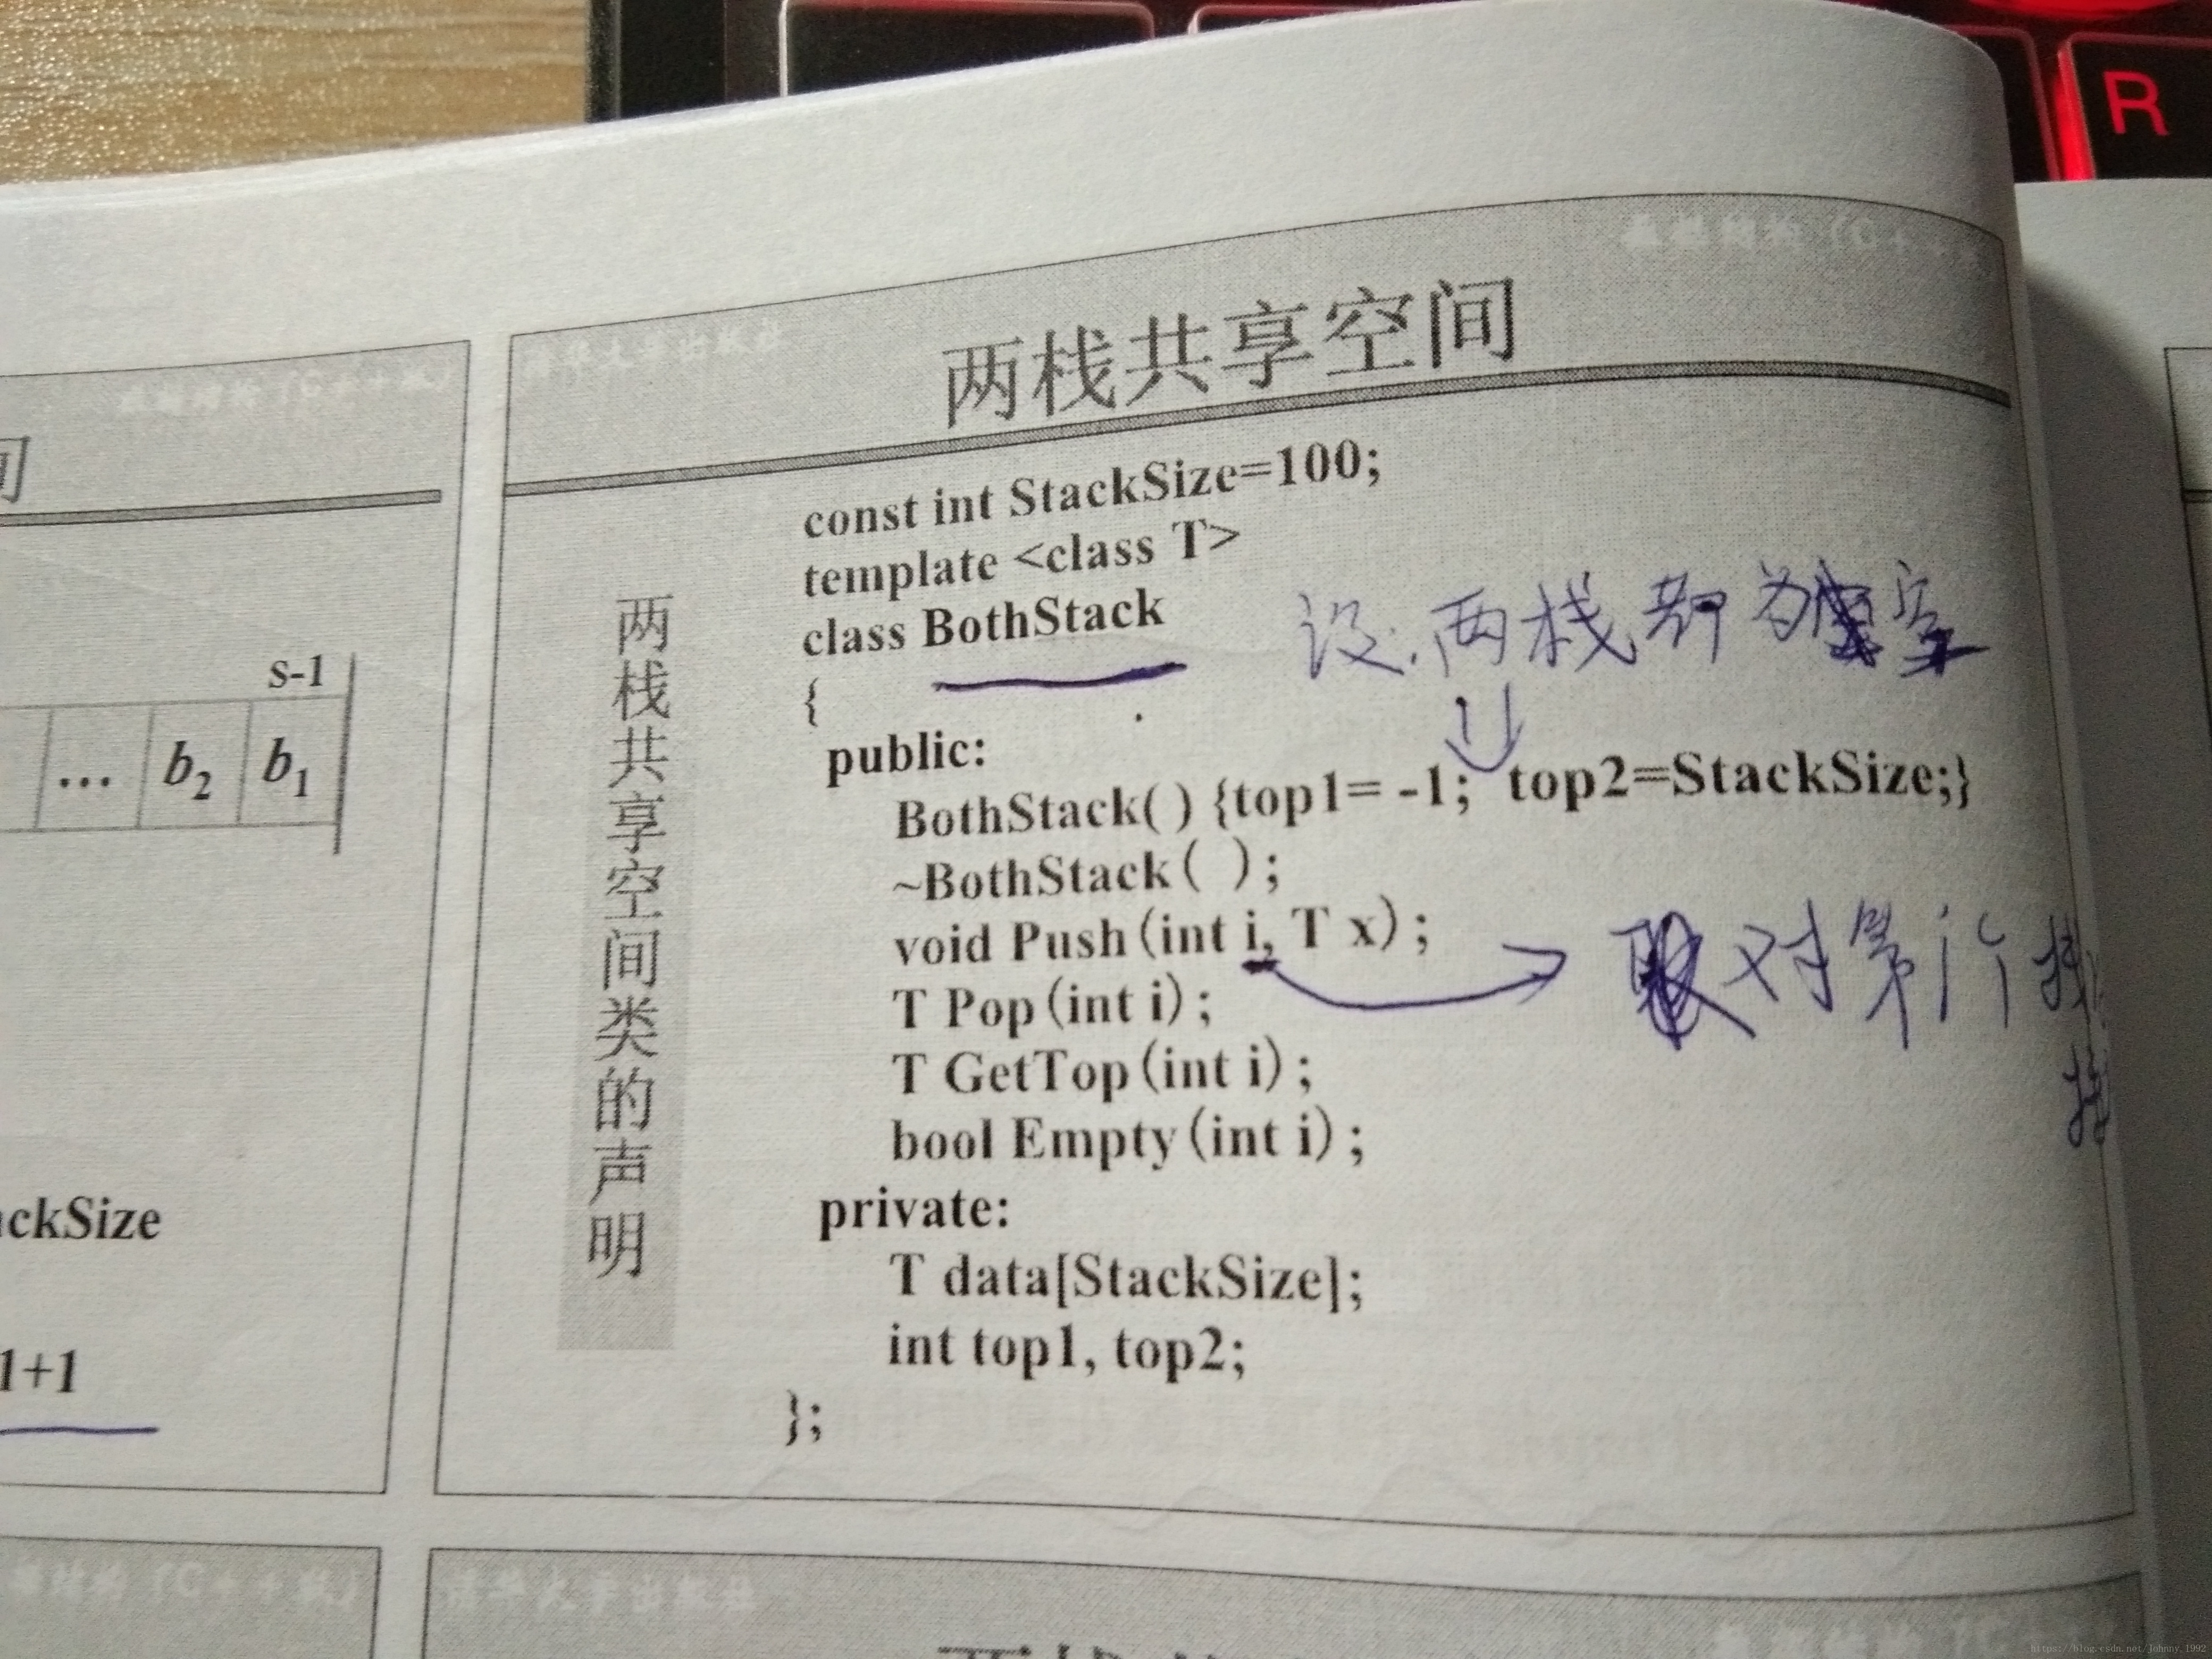 R
两栈共享空间
const int StackSize=100;
template <class T>
class BothStack
设:两栈都为空
{
public:
BothStack( ) {top1= -1; top2=StackSize;}
~BothStack( );
void Push(int i, T x);
对第i个栈
T Pop(int i);
T GetTop(int i);
bool Empty(int i);
private:
T data[StackSize];
int top1, top2;
};
两栈共享空间类的声明
间
S-1
... b2 b1
ckSize
1+1
https://blog.csdn.net/Johnny_1992